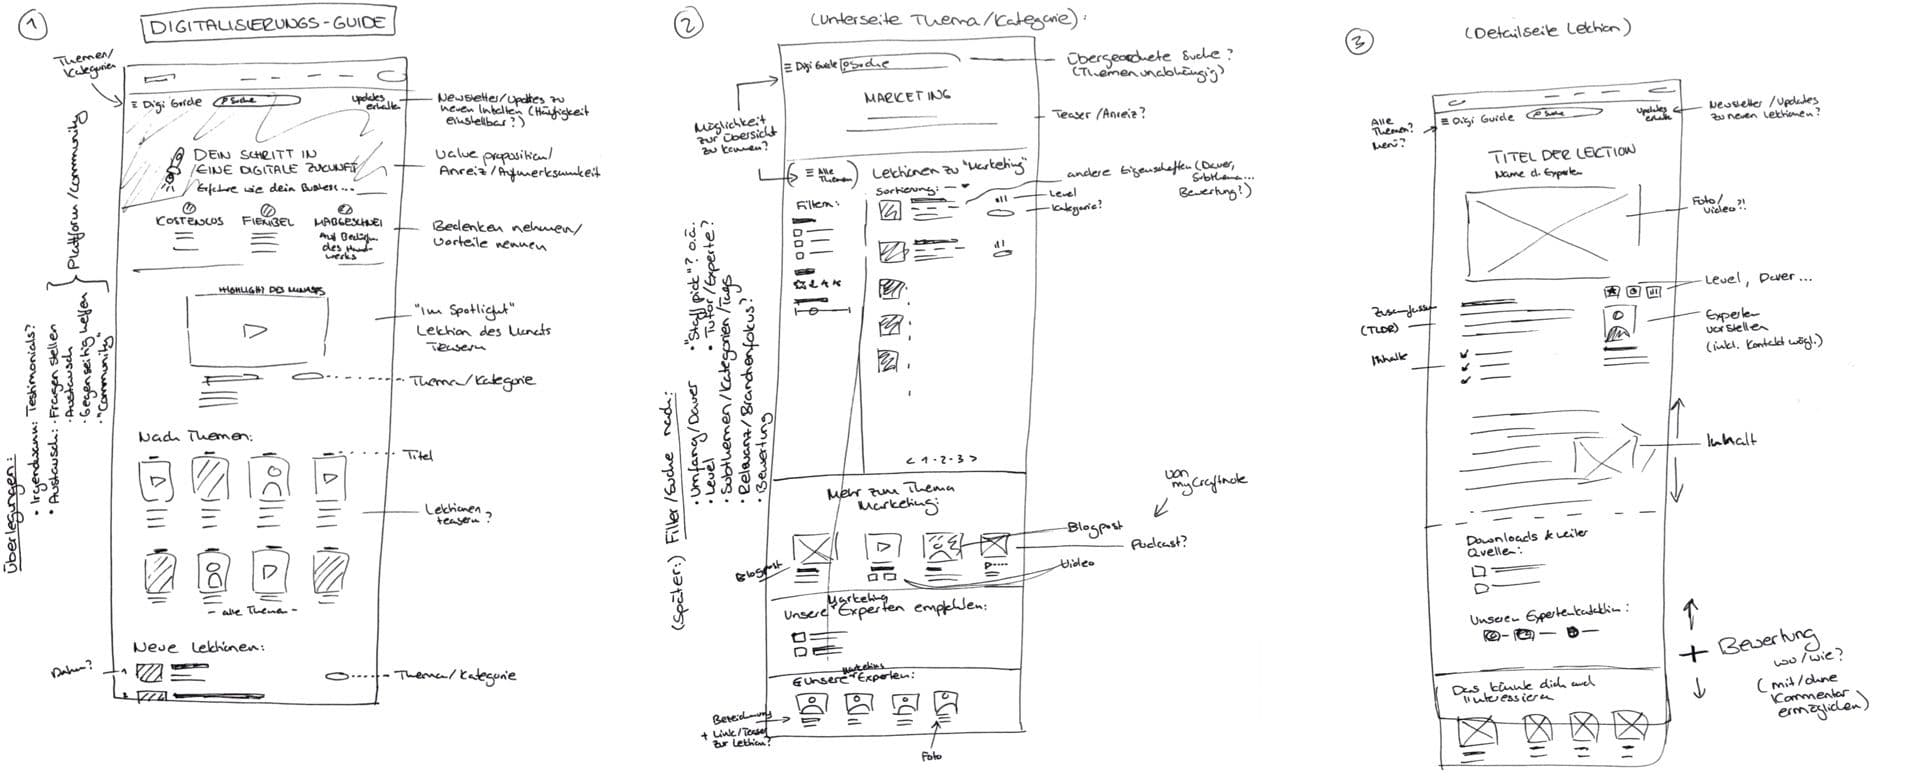 1
DIGITALISIERUNGS-GUIDE
Themen/
Kategorien
≡ Digi Guide
Suche
updates
erhalten
Newsletter/Updates zu
neuen Inhalten (Häufigkeit
einstellbar?)
DEIN SCHRITT IN
EINE DIGITALE ZUKUNFT
Erfahre wie dein Business...
Value proposition/
Anreiz/Aufmerksamkeit
KOSTENLOS
FLEXIBEL
MAßGESCHNEI
Auf Bedürfn.
des Hand-
werks
Bedenken nehmen/
Vorteile nennen
HIGHLIGHT DES MONATS
"Im Spotlight"
Lektion des Monats
Teasern
Thema/Kategorie
Nach Themen:
Titel
Lektionen
teasern?
- alle Themen -
Neue Lektionen:
Datum?
Thema/Kategorie
Überlegungen:
• Irgendwann: Testimonials?
• Austausch: • Fragen stellen
• Austausch
• Gegenseitig helfen
• "Community"
Plattform/Community
2
(Unterseite Thema/Kategorie):
≡ Digi Guide
Suche
Übergeordnete Suche?
(Themenunabhängig)
MARKETING
Teaser/Anreiz?
Möglichkeit
zur Übersicht
zu kommen?
≡ Alle
Themen
Lektionen zu "Marketing"
Sortierung:
Filtern:
andere Eigenschaften (Dauer,
Subthema...
Bewertung?)
Level
Kategorie?
< 1-2-3 >
(Später:) Filter/Suche nach:
• Umfang/Dauer
• Level
• Subthemen/Kategorien/Tags
• Relevanz/Branchenfokus?
• Bewertung
• "Staff pick"? o.ä.
• Tutor/Experte?
Mehr zum Thema
Marketing:
von
myCraftnote
Blogpost
Podcast?
Blogpost
Video
Unsere Marketing Experten empfehlen:
Unsere Marketing Experten:
Bezeichnung
+ Link/Teaser
zur Lektion?
Foto
3
(Detailseite Lektion)
Alle
Themen?
Menü?
≡ Digi Guide
Suche
Updates
erhalten
Newsletter/Updates
zu neuen Lektionen?
TITEL DER LEKTION
Name d. Experten
Foto/
Video?!
Level, Dauer ...
Zusammenfass
(TLDR)
Experten
vorstellen
(inkl. Kontakt mögl.)
Inhalte
Inhalt
Downloads & weiter
Quellen:
Unseren Experten kontaktieren:
+ Bewertung
wo/wie?
(mit/ohne
Kommentar
ermöglichen)
Das könnte dich auch
interessieren